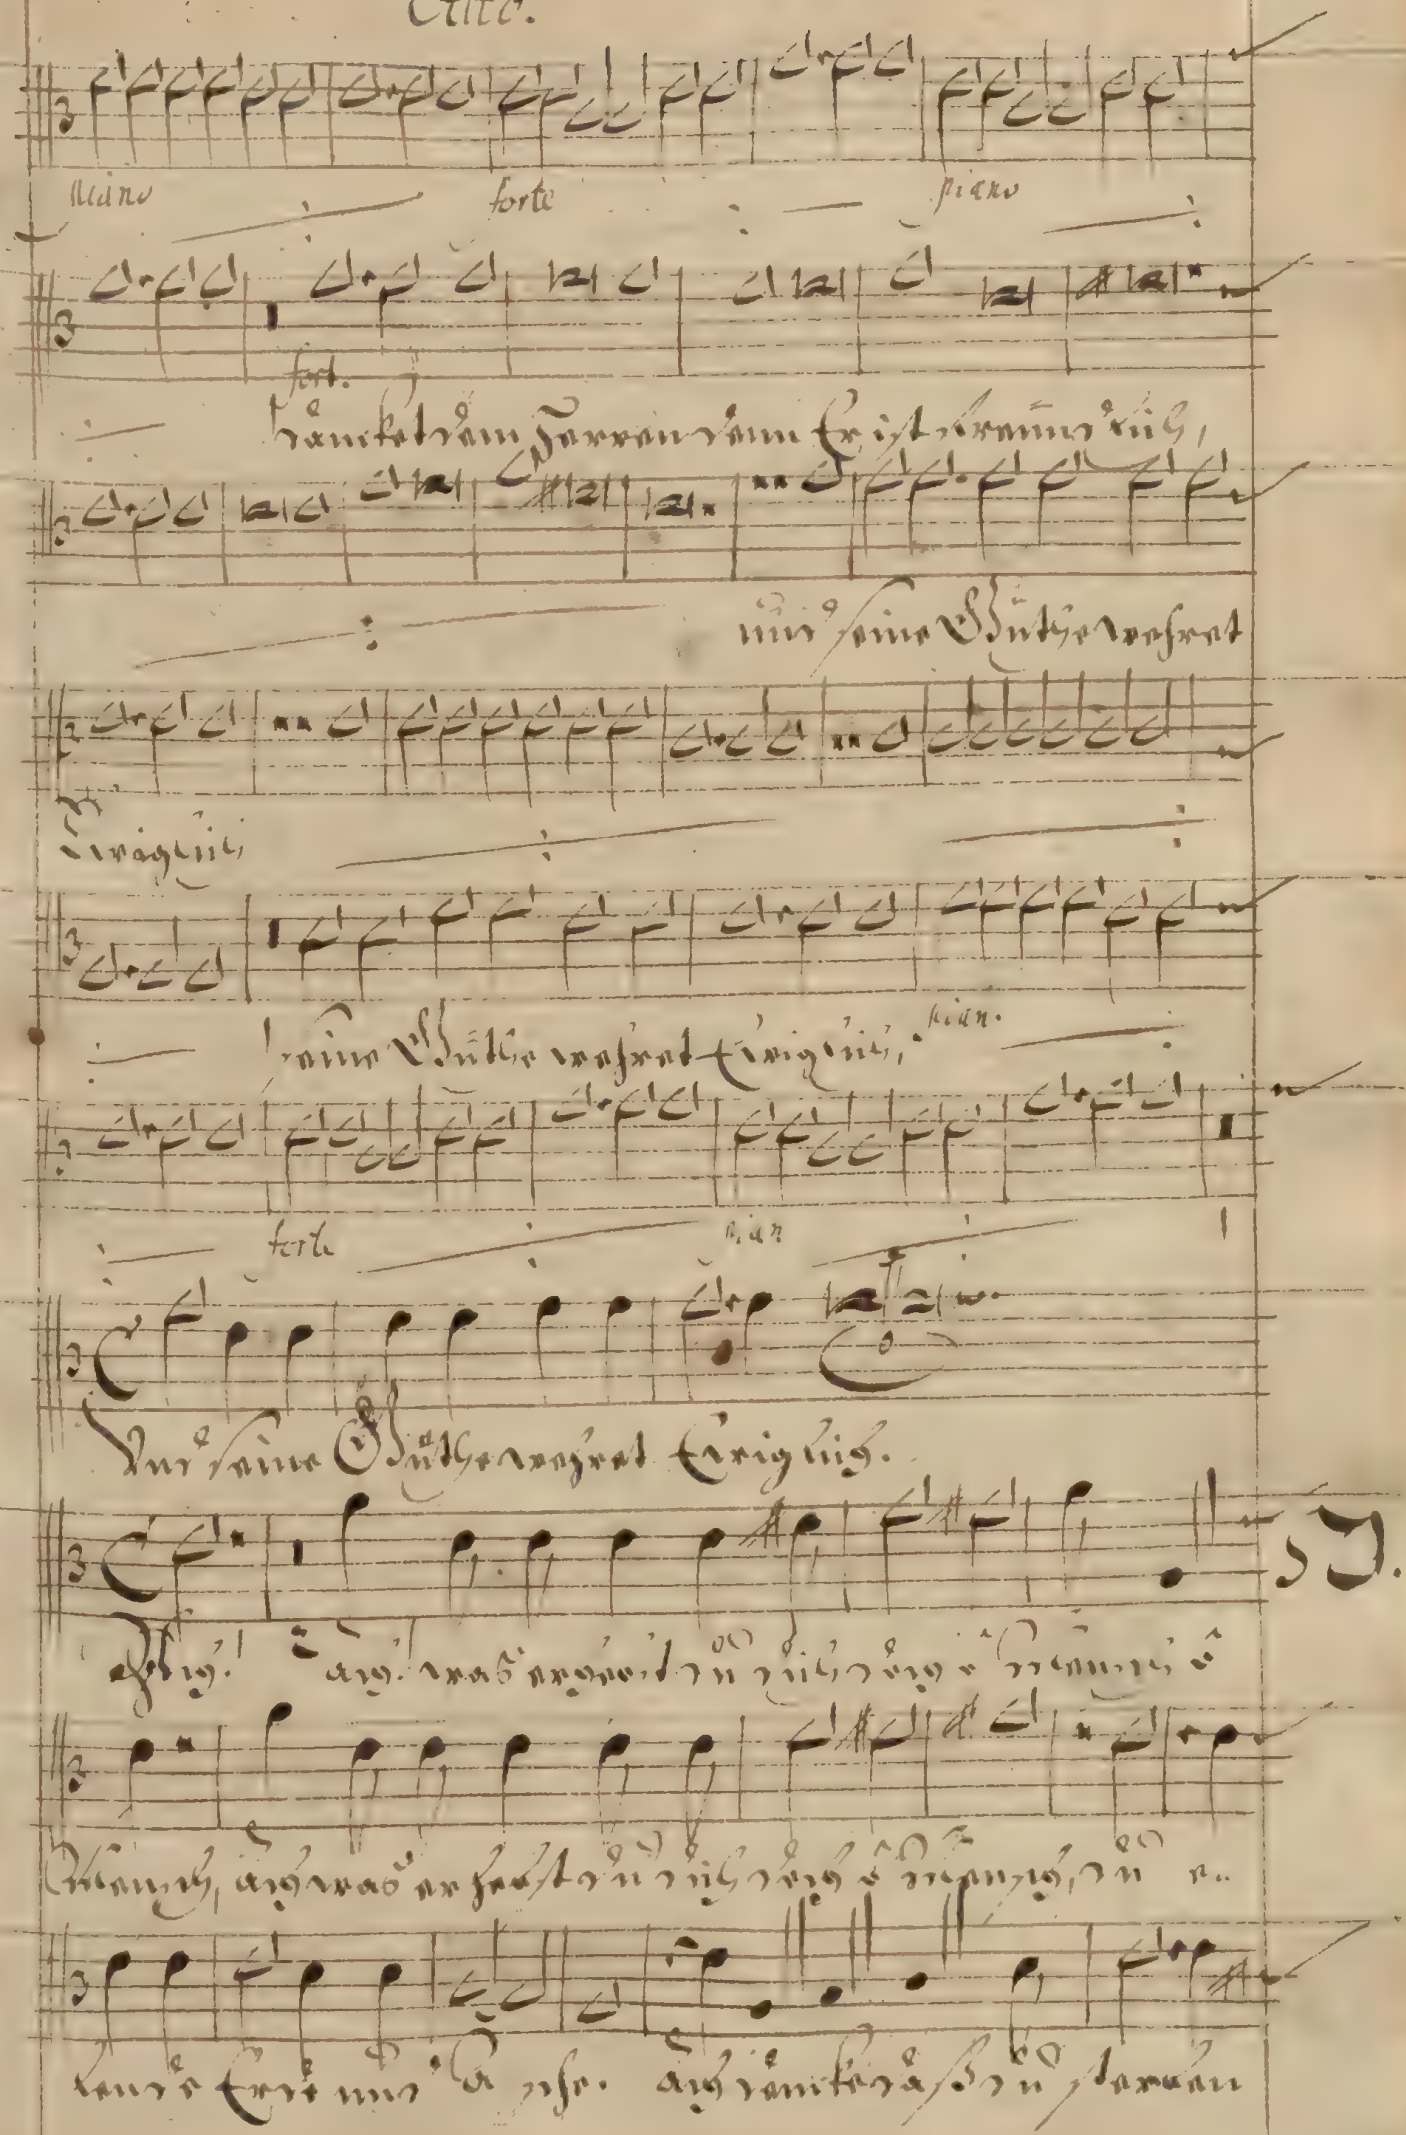 Alto.
piano forte piano
fort.
dancket dem Herren denn Er ist freundlich,
und seine Güthe wehret
Ewiglich
seine Güthe wehret Ewiglich, pian.
forte pian
Und seine Güthe wehret Ewiglich.
Ach! was du dich doch o Mensch o
Mensch, ach was erhebst du dich doch o Mensch, du e..
lende Erde und Asche. ach dencke daß du sterben